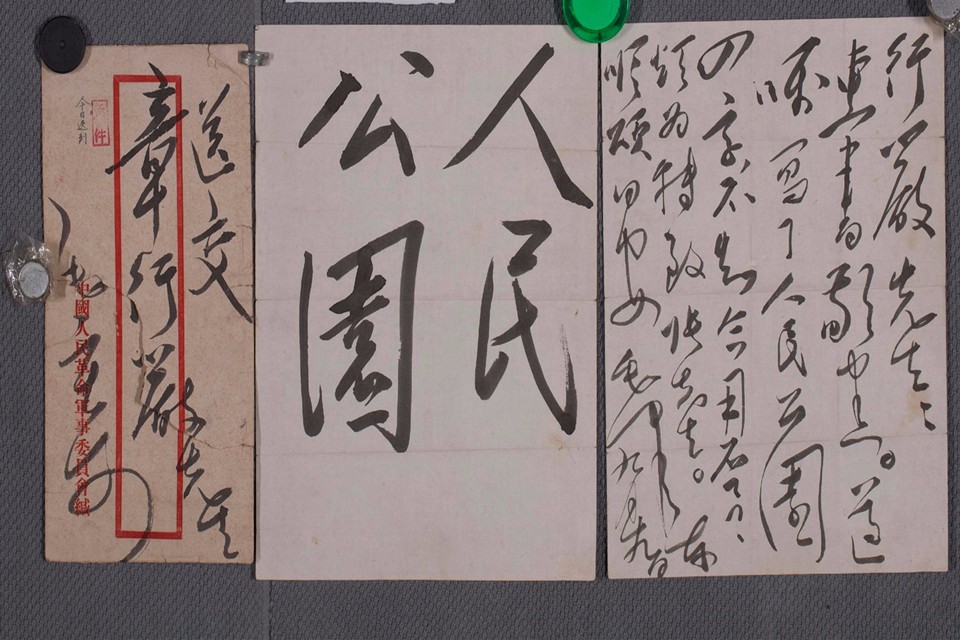 行嚴先生：
惠書敬悉。遵
囑寫了人民公園
字不知合用否？
為轉致
順頌 毛澤東 九月九日
人民
公園
送交
章行嚴先生
中國人民革命軍事委員會緘
件
今日送到